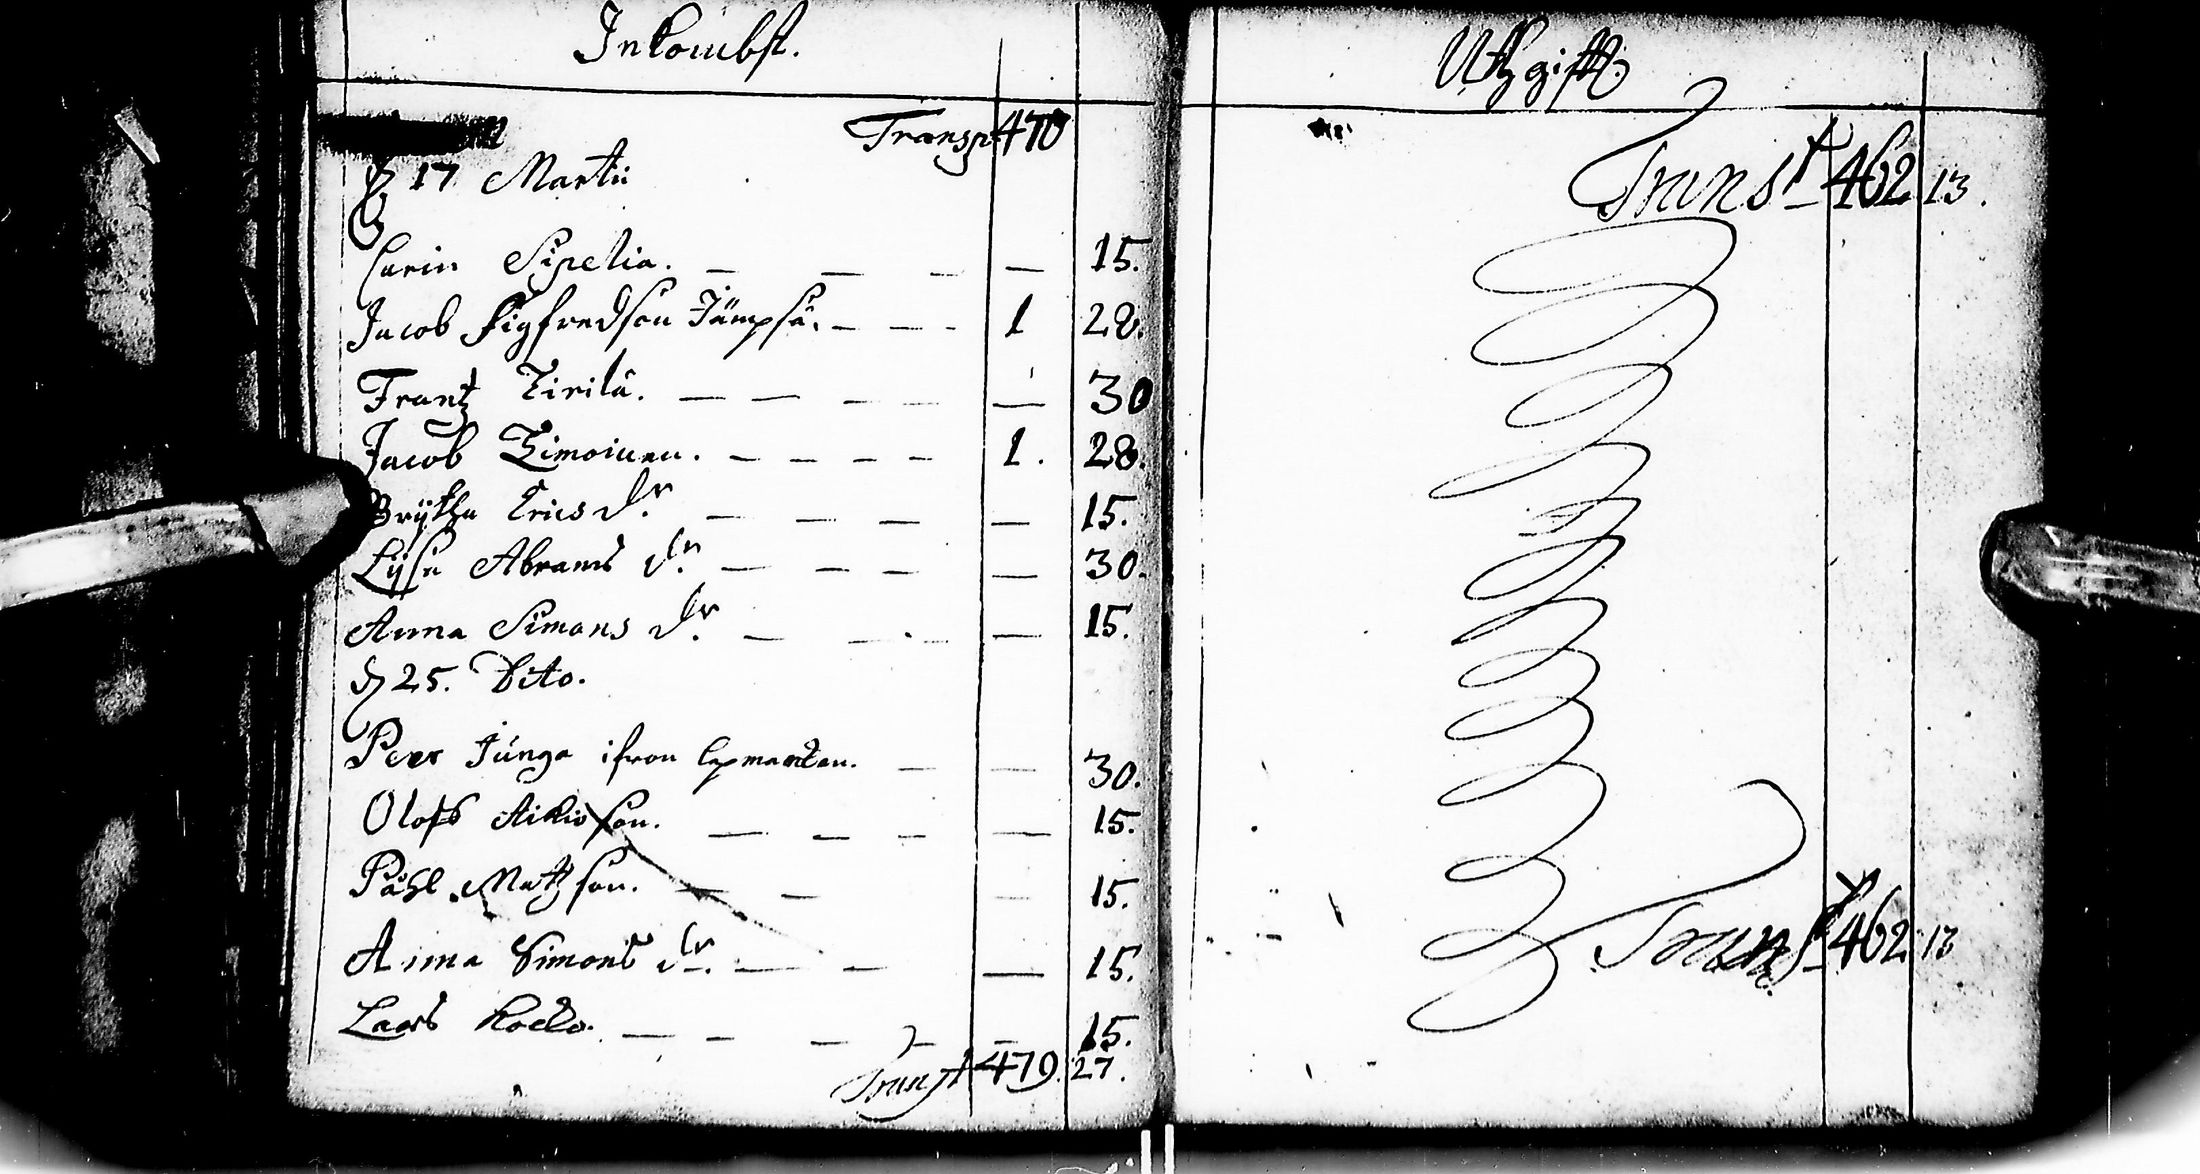 Inkombst.
Transpt 470
d 17 Martii
Carin Sipelia. — — — — 15.
Jacob Sigfredson Jämpsä. — — — 1 28.
Frantz Eirilä. — — — — — 30
Jacob Timoinen. — — — — 1. 28.
Brÿtha Erics dr — — — — 15.
Lÿsa Abrams dr. — — — — 30.
Anna Simons dr. — — — — 15.
d 25. Dito.
Peer Junga ifron — — 30.
Olof son. — — — — 15.
Påhl Matzson. — — — 15.
Anna Simons dr. — — — 15.
Lars — — — — — 15.
Transpt 479. 27.
Uthgift.
Transt 462 13.
Transt 462 13